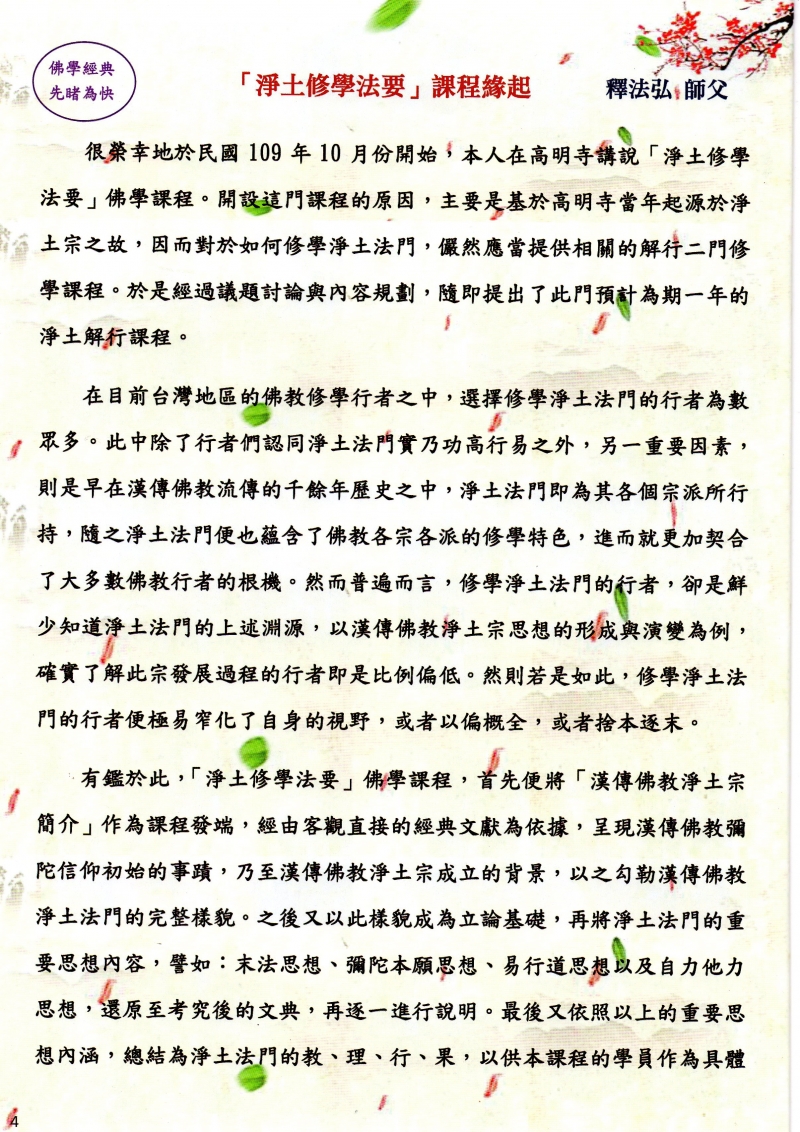 佛學經典
先睹為快
「淨土修學法要」課程緣起
釋法弘 師父
很榮幸地於民國 109 年 10 月份開始，本人在高明寺講說「淨土修學
法要」佛學課程。開設這門課程的原因，主要是基於高明寺當年起源於淨
土宗之故，因而對於如何修學淨土法門，儼然應當提供相關的解行二門修
學課程。於是經過議題討論與內容規劃，隨即提出了此門預計為期一年的
淨土解行課程。
在目前台灣地區的佛教修學行者之中，選擇修學淨土法門的行者為數
眾多。此中除了行者們認同淨土法門實乃功高行易之外，另一重要因素，
則是早在漢傳佛教流傳的千餘年歷史之中，淨土法門即為其各個宗派所行
持，隨之淨土法門便也蘊含了佛教各宗各派的修學特色，進而就更加契合
了大多數佛教行者的根機。然而普遍而言，修學淨土法門的行者，卻是鮮
少知道淨土法門的上述淵源，以漢傳佛教淨土宗思想的形成與演變為例，
確實了解此宗發展過程的行者即是比例偏低。然則若是如此，修學淨土法
門的行者便極易窄化了自身的視野，或者以偏概全，或者捨本逐末。
有鑑於此，「淨土修學法要」佛學課程，首先便將「漢傳佛教淨土宗
簡介」作為課程發端，經由客觀直接的經典文獻為依據，呈現漢傳佛教彌
陀信仰初始的事蹟，乃至漢傳佛教淨土宗成立的背景，以之勾勒漢傳佛教
淨土法門的完整樣貌。之後又以此樣貌成為立論基礎，再將淨土法門的重
要思想內容，譬如：末法思想、彌陀本願思想、易行道思想以及自力他力
思想，還原至考究後的文典，再逐一進行說明。最後又依照以上的重要思
想內涵，總結為淨土法門的教、理、行、果，以供本課程的學員作為具體
4